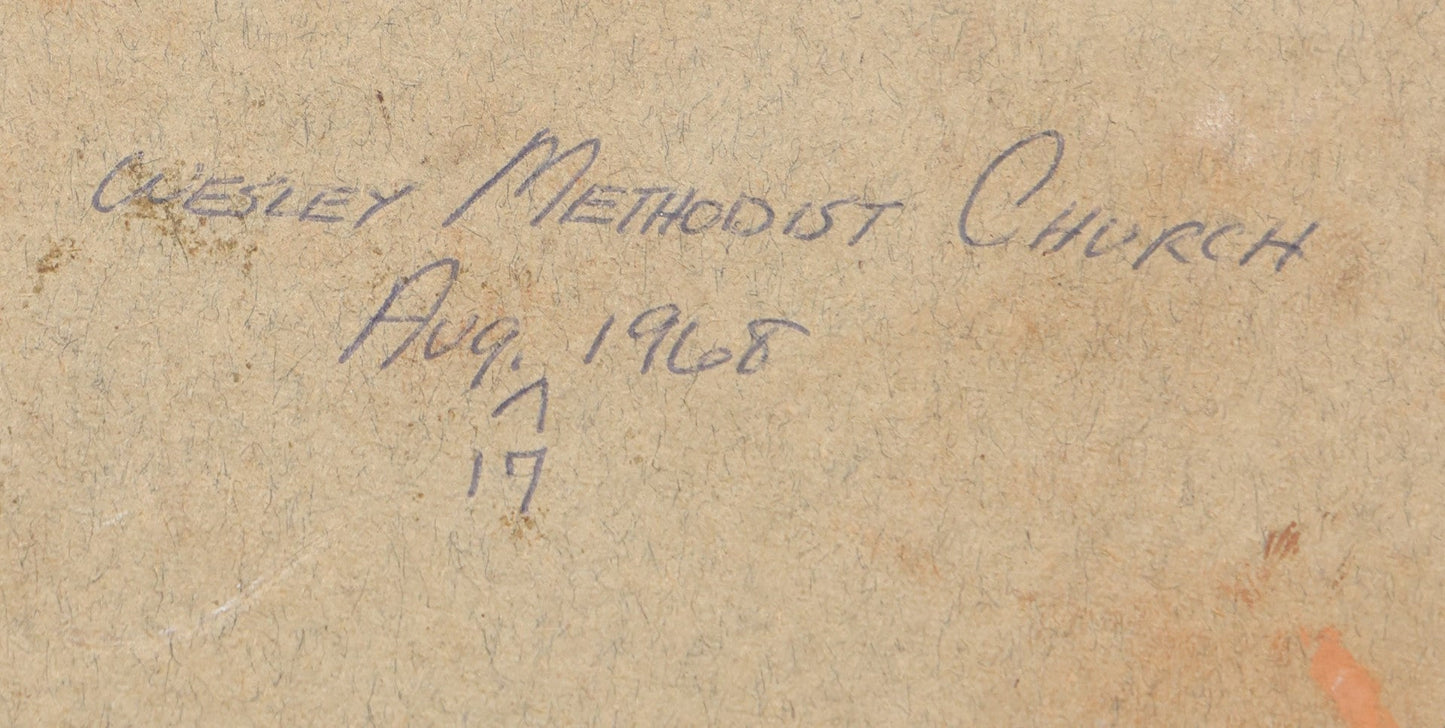 WESLEY METHODIST CHURCH
AUG. ^ 1968
17